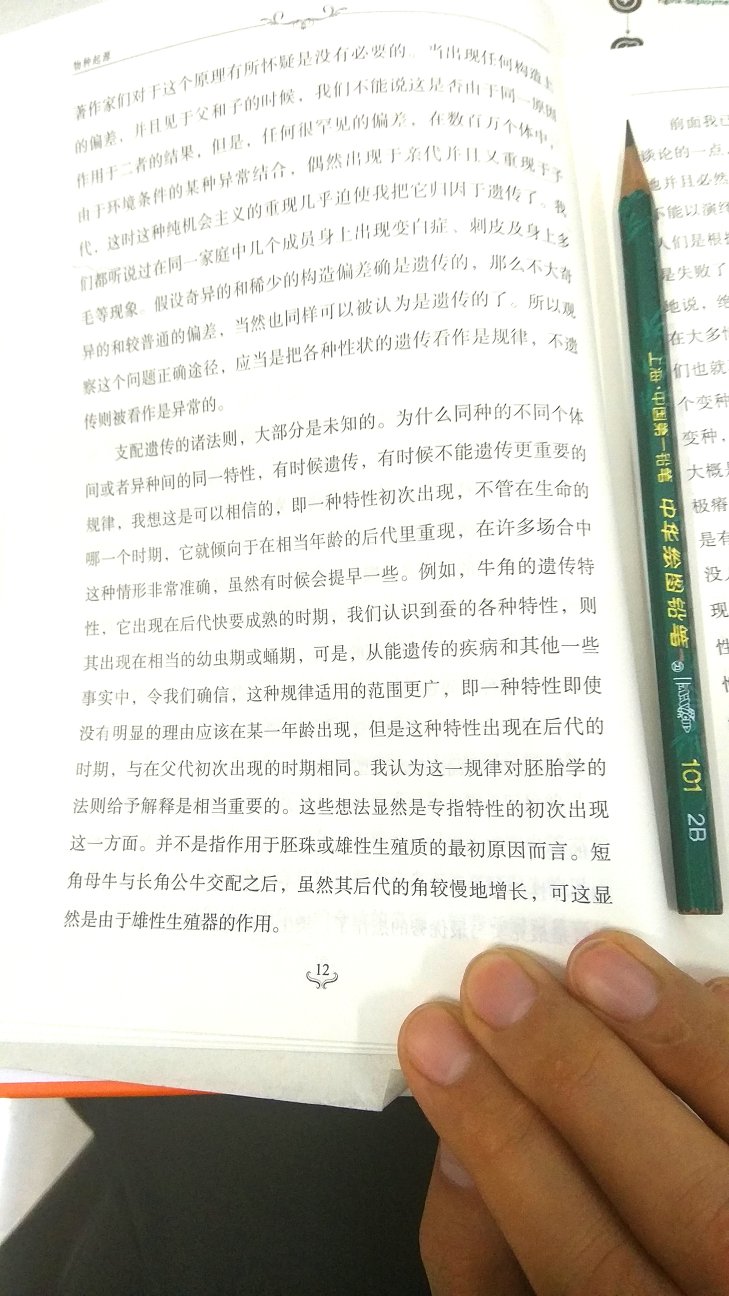 物种起源
著作家们对于这个原理有所怀疑是没有必要的。当出现任何构造上
的偏差，并且见于父和子的时候，我们不能说这是否由于同一原因
作用于二者的结果，但是，任何很罕见的偏差，在数百万个体中，
由于环境条件的某种异常结合，偶然出现于亲代并且又重现于子
代，这时这种纯机会主义的重现几乎迫使我把它归因于遗传了。我
们都听说过在同一家庭中几个成员身上出现变白症、刺皮及身上多
毛等现象。假设奇异的和稀少的构造偏差确是遗传的，那么不大奇
异的和较普通的偏差，当然也同样可以被认为是遗传的了。所以观
察这个问题正确途径，应当是把各种性状的遗传看作是规律，不遗
传则被看作是异常的。
支配遗传的诸法则，大部分是未知的。为什么同种的不同个体
间或者异种间的同一特性，有时候遗传，有时候不能遗传更重要的
规律，我想这是可以相信的，即一种特性初次出现，不管在生命的
哪一个时期，它就倾向于在相当年龄的后代里重现，在许多场合中
这种情形非常准确，虽然有时候会提早一些。例如，牛角的遗传特
性，它出现在后代快要成熟的时期，我们认识到蚕的各种特性，则
其出现在相当的幼虫期或蛹期，可是，从能遗传的疾病和其他一些
事实中，令我们确信，这种规律适用的范围更广，即一种特性即使
没有明显的理由应该在某一年龄出现，但是这种特性出现在后代的
时期，与在父代初次出现的时期相同。我认为这一规律对胚胎学的
法则给予解释是相当重要的。这些想法显然是专指特性的初次出现
这一方面。并不是指作用于胚珠或雄性生殖质的最初原因而言。短
角母牛与长角公牛交配之后，虽然其后代的角较慢地增长，可这显
然是由于雄性生殖器的作用。
12
前面我已
谈论的一点，
也并且必然
不能以演绎
人们是根据
是失败了
地说，绝
在大多
们也就
个变种
变种，
大概是
极瘠
是有
没
现
性
上海·中国第一铅笔 中华绘图铅笔 101 2B